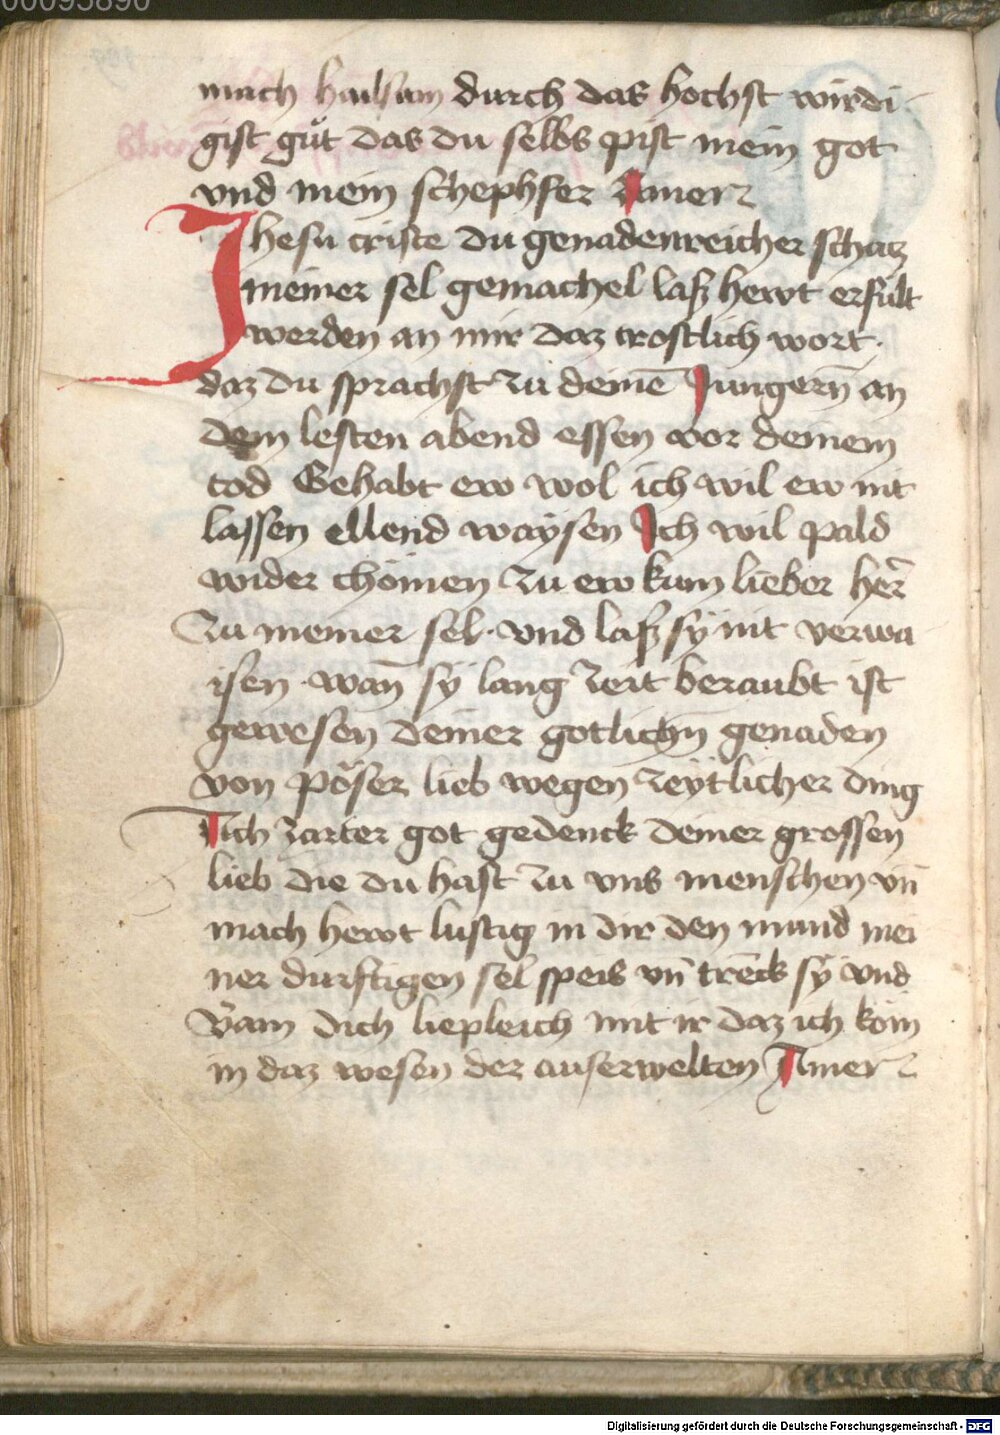 00095890
mach hailsam durch das hochst wirdi
gist gůt das du selbs pist mein got
vnd mein schephfer Amen
Jhesu criste du genadenreicher schacz
meiner sel gemachel lasz hewt erfult
werden an mir daz trostlich wort·
daz du sprachst zu deinē Jungern̄ an
dem lesten abend essen vor deinem
tod Gehabt ew wol ich wil ew nit
lassen ellend waysen Ich wil pald
wider chömen zu ew kum lieber her̄
zu meiner sel· vnd lasz sÿ nit verwa
isen · wan̄ sÿ lang zeit beraubt ist
gewesen deiner gotlichn̄ genaden
von pöser lieb wegen zeÿtlicher ding
Ach zarter got gedenck deiner grossen
lieb die du hast zu vns menschen vn̄
mach hewt lustig in dir den mund mei
ner durftigen sel speis vn̄ trēck sÿ vnd
v̄am dich liepleich mit ir daz ich köm
in daz wesen der auserwelten Amen
Digitalisierung gefördert durch die Deutsche Forschungsgemeinschaft - DFG